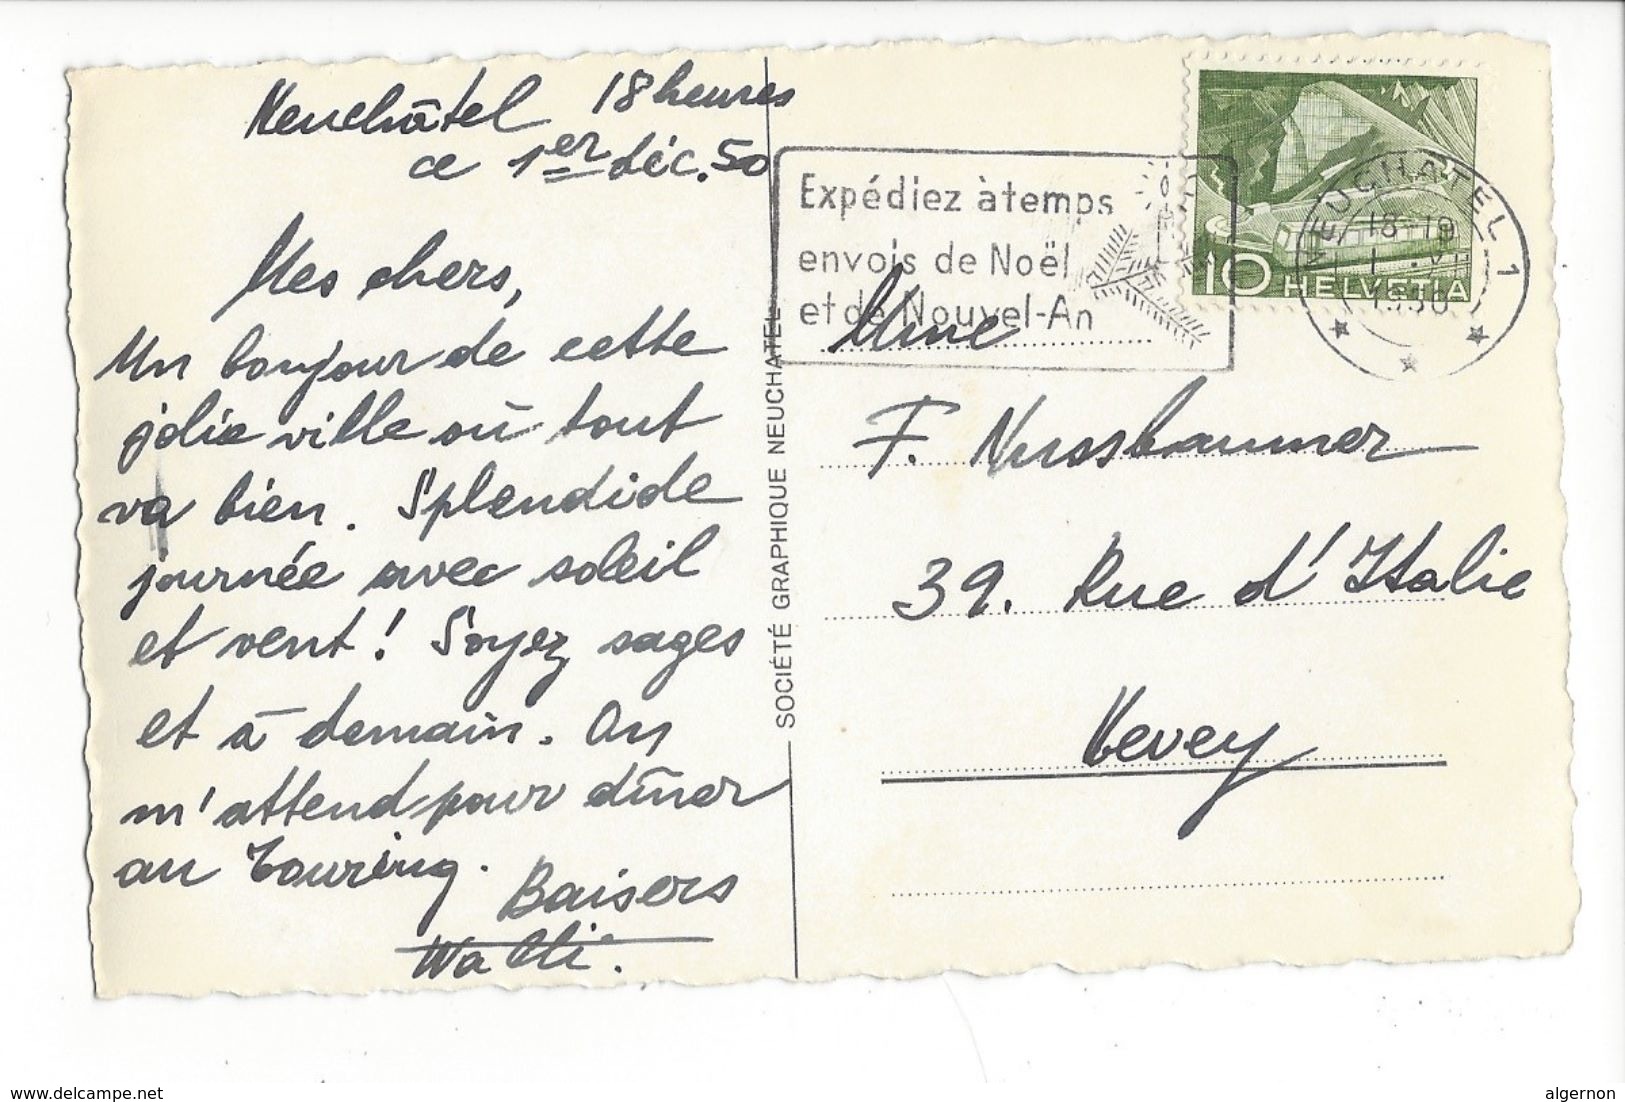 Neuchâtel 18 heures
ce 1er déc. 50
Mes chers,
Un bonjour de cette
jolie ville où tout
va bien. Splendide
journée avec soleil
et vent! Soyez sages
et à demain. On
m'attend pour dîner
au Touring.
Baisers
Walli.
SOCIÉTÉ GRAPHIQUE NEUCHATEL
Expédiez à temps
envois de Noël
et de Nouvel-An
10 HELVETIA
NEUCHÂTEL 1
18-19
1950
Mme
F. Nussbaumer
39. Rue d'Italie
Vevey
www.delcampe.net
algernon